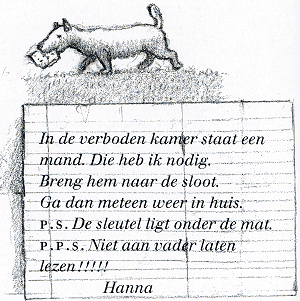 In de verboden kamer staat een
mand. Die heb ik nodig.
Breng hem naar de sloot.
Ga dan meteen weer in huis.
P.S. De sleutel ligt onder de mat.
P.P.S. Niet aan vader laten
lezen!!!!!
Hanna